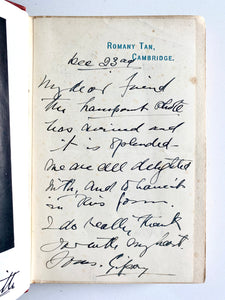 ROMANY TAN,
CAMBRIDGE.
Dec 23rd
My dear friend
the transparent
has arrived and
it is splendid
we are all delighted
with, and to have it
in this form.
I do really thank
you with my heart
Yours. Gipsy
ith